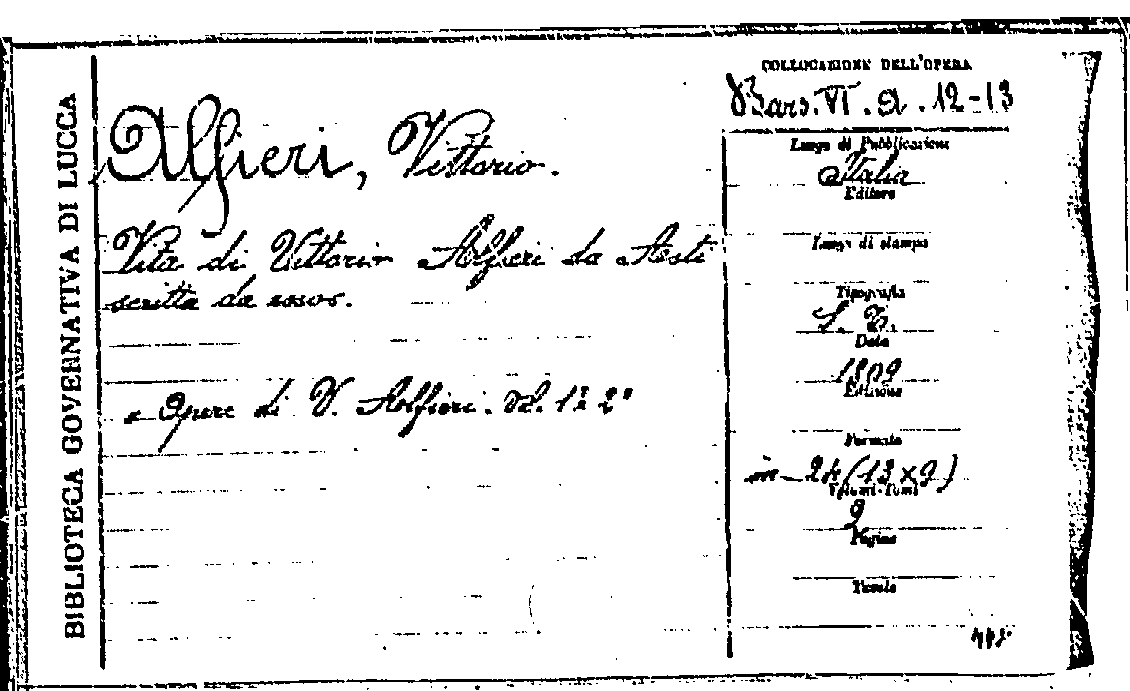 BIBLIOTECA GOVERNATIVA DI LUCCA
Alfieri, Vittorio.
Vita di Vittorio Alfieri da Asti
scritta da esso.
Opere di V. Alfieri. Vol. 1º 2º
COLLOCAZIONE DELL'OPERA
Bars. VI. a. 12-13
Luogo di Pubblicazione
Italia
Editore
Luogo di stampa
Tipografia
S. T.
Data
1809
Edizione
Formato
in-24 (13×9)
Volumi-Tomi
2
Pagine
Tavole